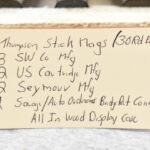 Thompson Stick Mags / 30Rd
3 SW Co Mfg
2 US Cartridge Mfg
2 Seymour Mfg
1 Savage/Auto Ordnance Body Rpt Conn
All In Wood Display Case